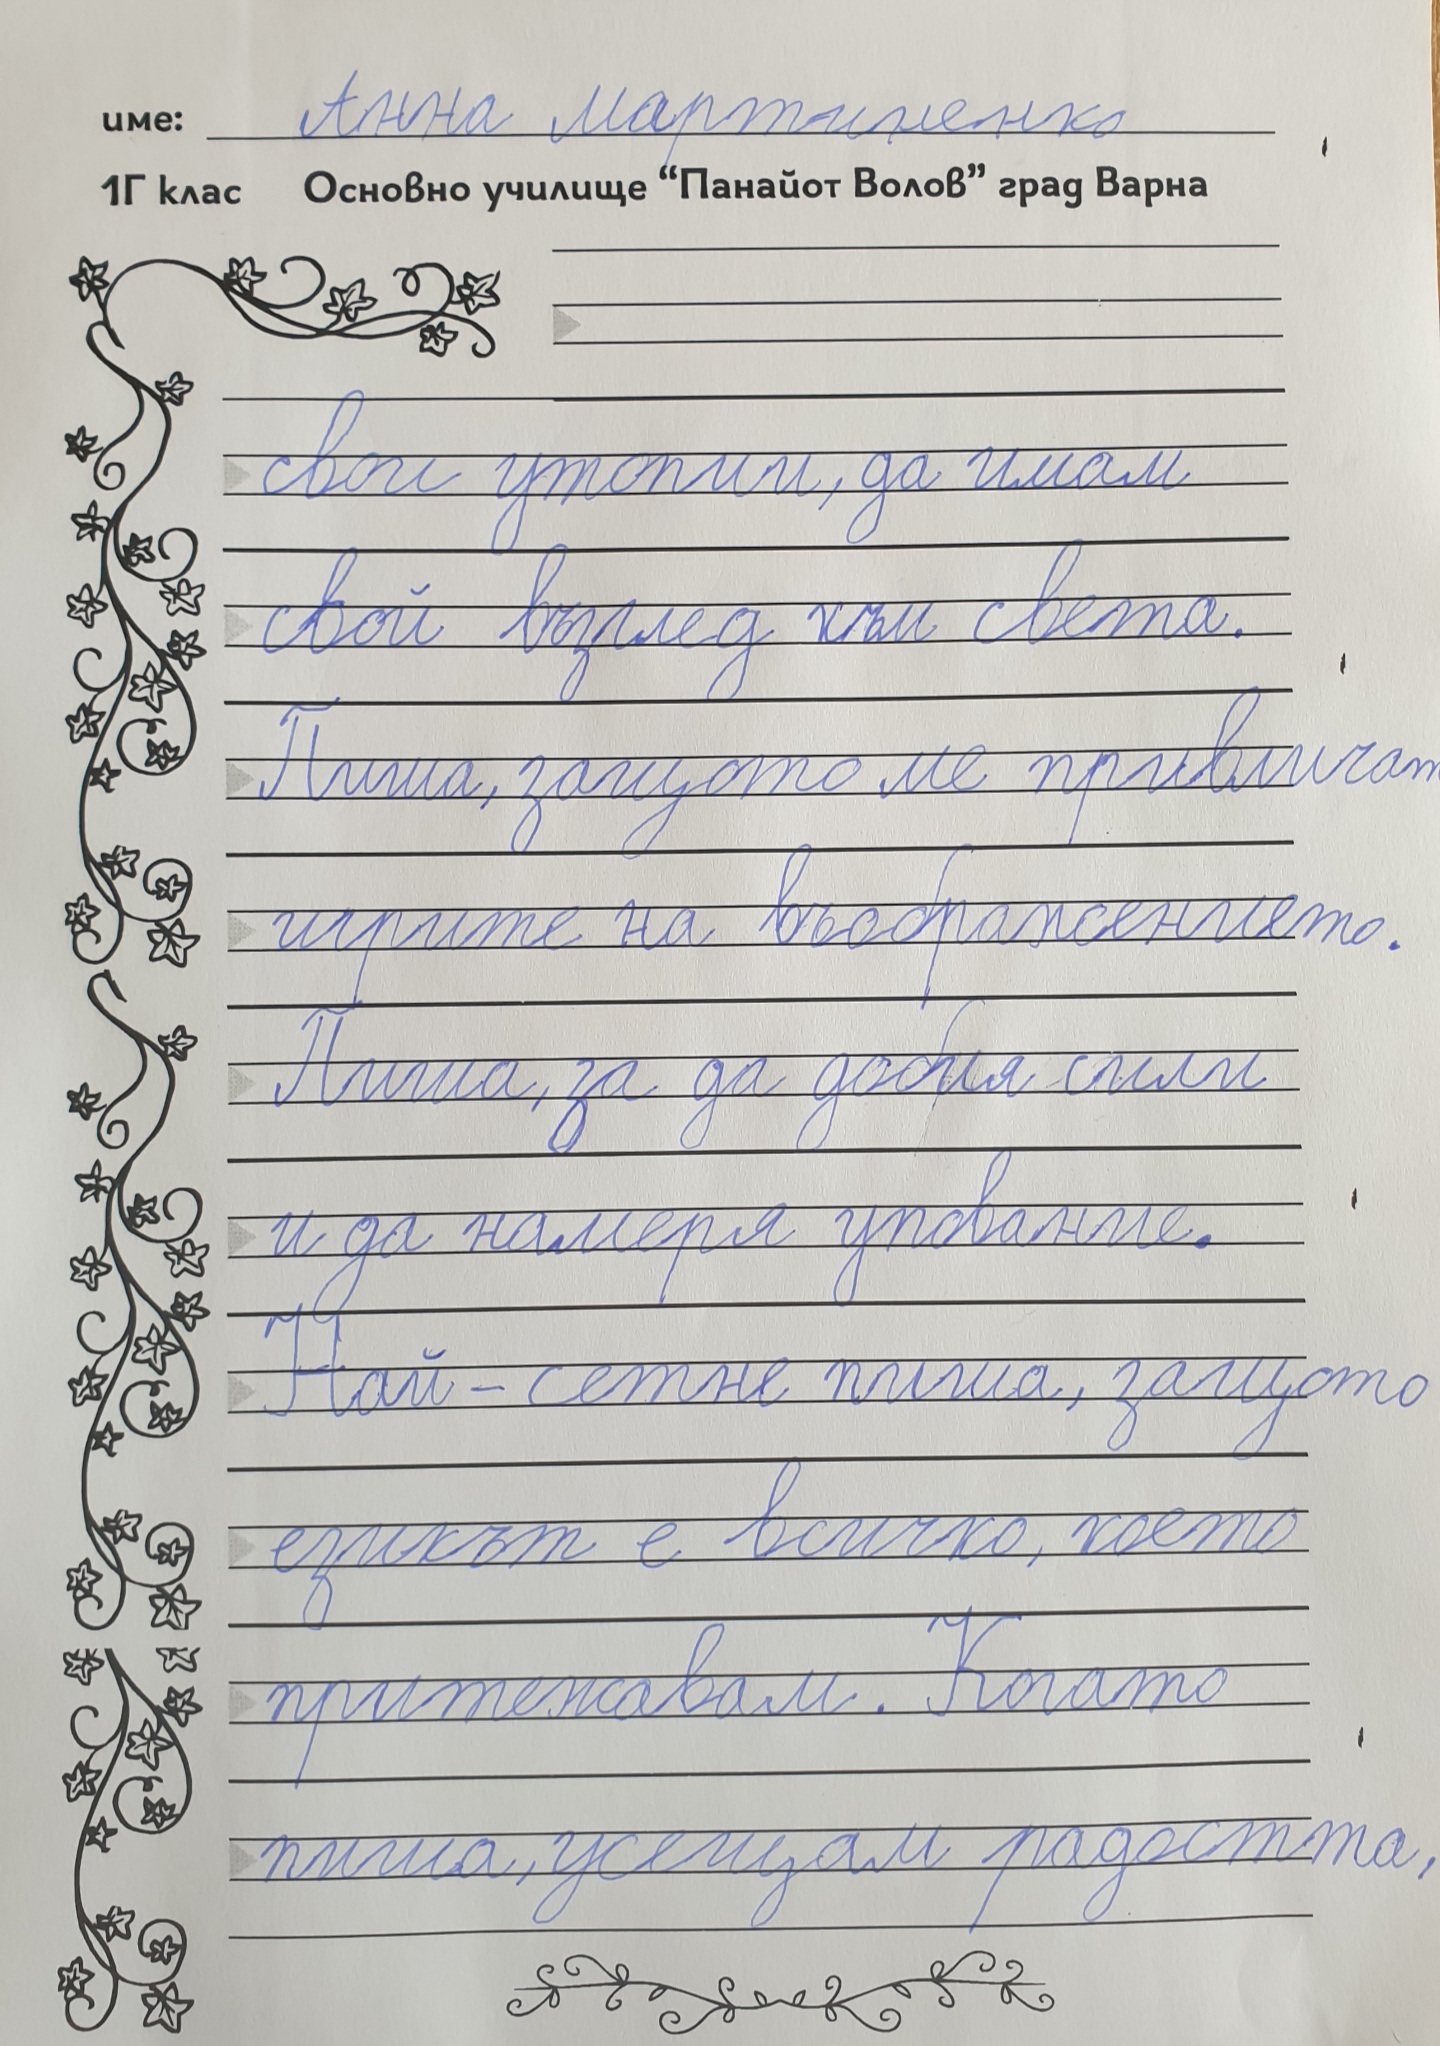 име: Анна Мартиненко
1Г клас Основно училище “Панайот Волов” град Варна
свои утопии, да имам
свой възглед към света.
Пиша, защото ме привличат
игрите на въображението.
Пиша, за да добия сили
и да намеря упование.
Най-сетне пиша, защото
езикът е всичко, което
притежавам. Когато
пиша, усещам радостта,